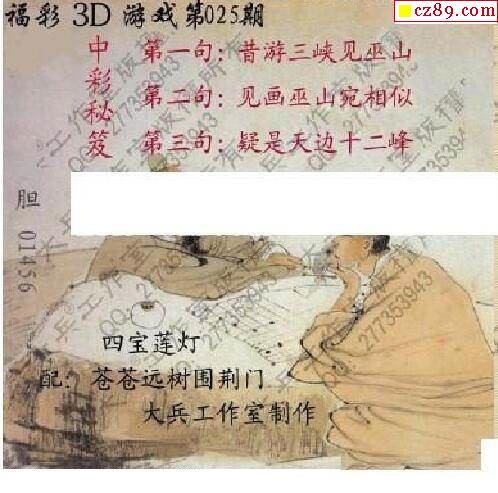 cz89.com
福彩 3D 游戏第025期
中彩秘笈
第一句：昔游三峡见巫山
第二句：见画巫山宛相似
第三句：疑是天边十二峰
胆 01456
四宝莲灯
配：苍苍远树围荆门
大兵工作室制作
大兵工作室版权所有
QQ:277353943